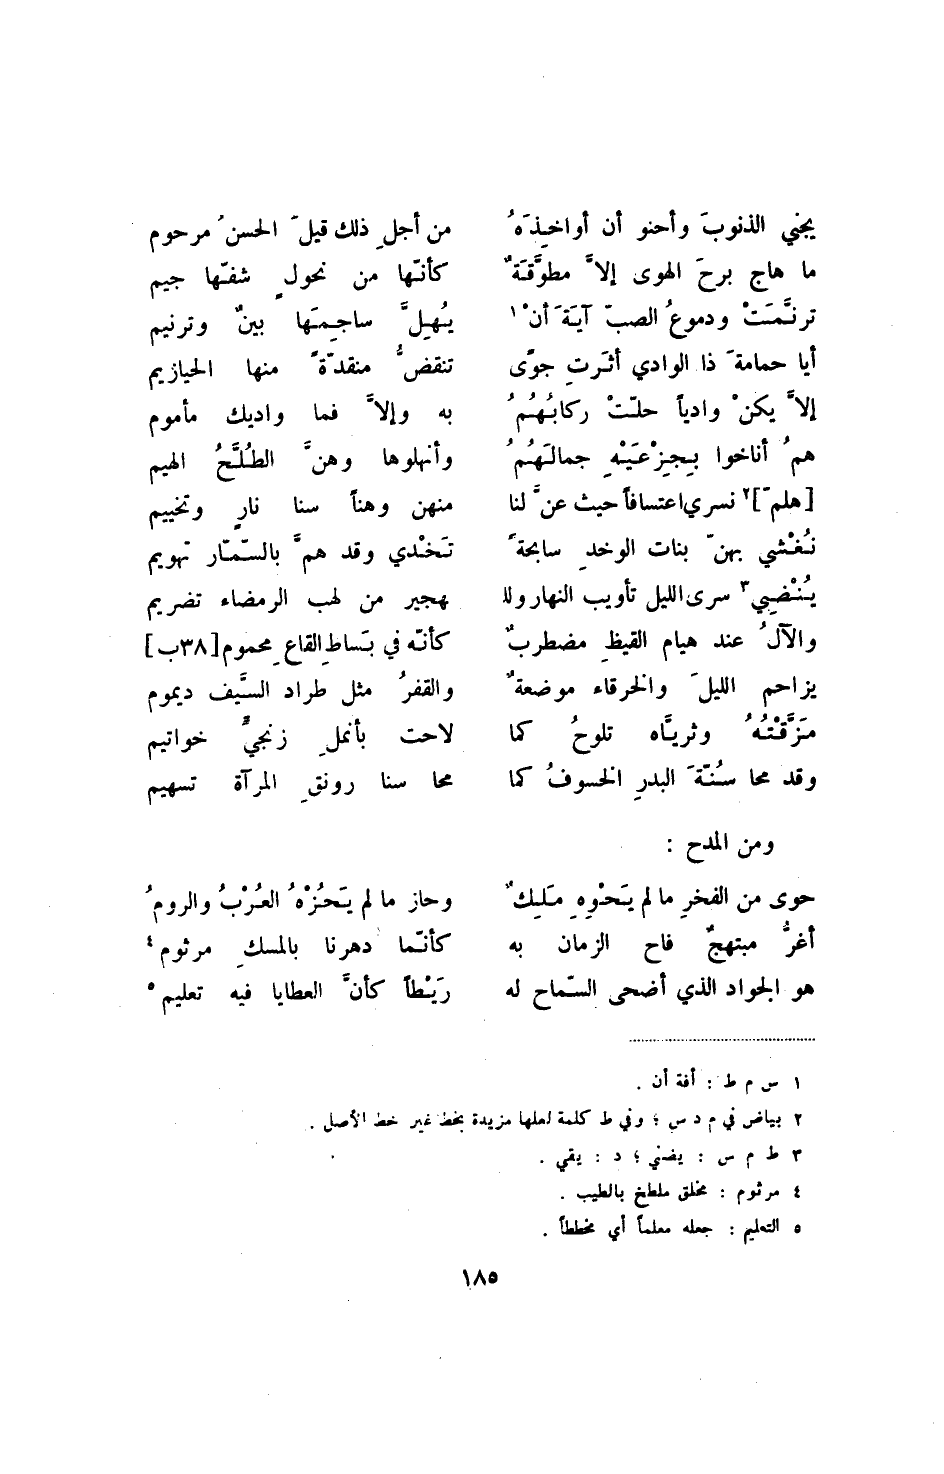 يجني الذنوبَ وأحنو أن أواخِذَهُ من أجلِ ذلك قيلَ الحسنُ مرحوم
ما هاج برحَ الهوى إلاَّ مطوَّقَةٌ كأنّها من نحولٍ شفّها جيم
ترنَّمَتْ ودموعُ الصبّ آيَةَ أنْ١ يُهِلَّ ساجِمَها بينٌ وترنيم
أيا حمامةَ ذا الوادي أثَرتِ جوًى تنقضُّ منقدّةً منها الحيازيم
إلاَّ يكنْ وادياً حلّتْ ركابُهُمُ به وإلاَّ فما واديك مأموم
همُ أناخوا بِجِزْعَيْهِ جمالَهُمُ وأنهلوها وهنَّ الطُلَّحُ الهيم
[هلمّ]٢ نسري اعتسافاً حيث عنَّ لنا منهن وهناً سنا نارٍ وتخييم
نُغْشي بهنّ بنات الوخدِ سابحةً تَخْدي وقد همَّ بالسّمّار تهويم
يُنْضِي٣ سرى الليل تأويب النهار وللـ ـهجير من لهب الرمضاء تضريم
والآلُ عند هيام القيظِ مضطربٌ كأنّه في بَساطِ القاعِ محموم [٣٨ب]
يزاحم الليلَ والخرقاء موضعةٌ والقفرُ مثل طراد السَّيف ديموم
مَزَّقْتُهُ وثريَّاه تلوحُ كما لاحت بأنملِ زنجيٍّ خواتيم
وقد محا سُنّةَ البدرِ الخسوفُ كما محا سنا رونقِ المرآة تسهيم
ومن المدح :
حوى من الفخرِ ما لم يَحْوِهِ مَلِكٌ وحاز ما لم يَحُزْهُ العُرْبُ والرومُ
أغرُّ مبتهجٌ فاح الزمان به كأنّما دهرنا بالمسكِ مرثوم٤
هو الجواد الذي أضحى السّماح له رَيْطاً كأنَّ العطايا فيه تعليم٥
١ س م ط : أفة أن .
٢ بياض في م د س ؛ وفي ط كلمة لعلها مزيدة بخط غير خط الأصل .
٣ ط م س : يضني ؛ د : يقي .
٤ مرثوم : مخلق ملطخ بالطيب .
٥ التعليم : جعله معلماً أي مخططاً .
١٨٥